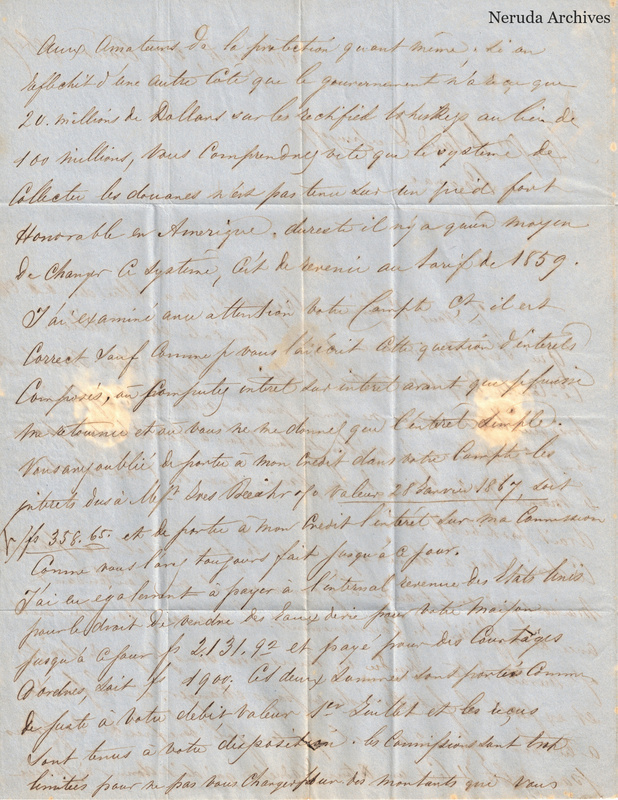 Neruda Archives
aux amateurs de la protection quant même. Si on
réfléchit d'une autre côté que le gouvernement n'a reçu que
20. millions de Dollars sur les rectified Whiskeys au lieu de
100 millions, vous comprendrez vite que le système de
Collecter les douanes n'est pas tenu sur un pied fort
Honorable en Amérique, du reste il n'y a qu'un moyen
de changer ce système, c'est de revenir au tarif de 1859.
J'ai examiné avec attention votre Compte Ct, il est
Correct sauf Comme je vous l'ai écrit cette question d'intérêts
Composés, où computez intret sur intret avant que je puisse
me retourner et où vous ne me donnez que l'intret simple.
Vous avez oublié de porter à mon Crédit dans votre Compte les
intrets dus à Valeur 28 Janvier 1867, soit
fs 358.65. et de porter à mon Crédit l'intéret sur ma Commission
Comme vous l'avez toujours fait jusqu'à ce jour.
J'ai eu également à payer à l'internal revenue des Etats Unis
pour le droit de vendre des Eaux de vie pour votre Maison
jusqu'à ce jour 2.131.92 et payé pour des Courtages
D'ordres, soit fs 1900; ces deux Sommes sont portés Comme
de juste à votre débit, valeur 1er Juillet et les reçus
sont tenus à votre disposition. les Commissions sont trop
limitées pour ne pas vous Charger pour des montants que vous